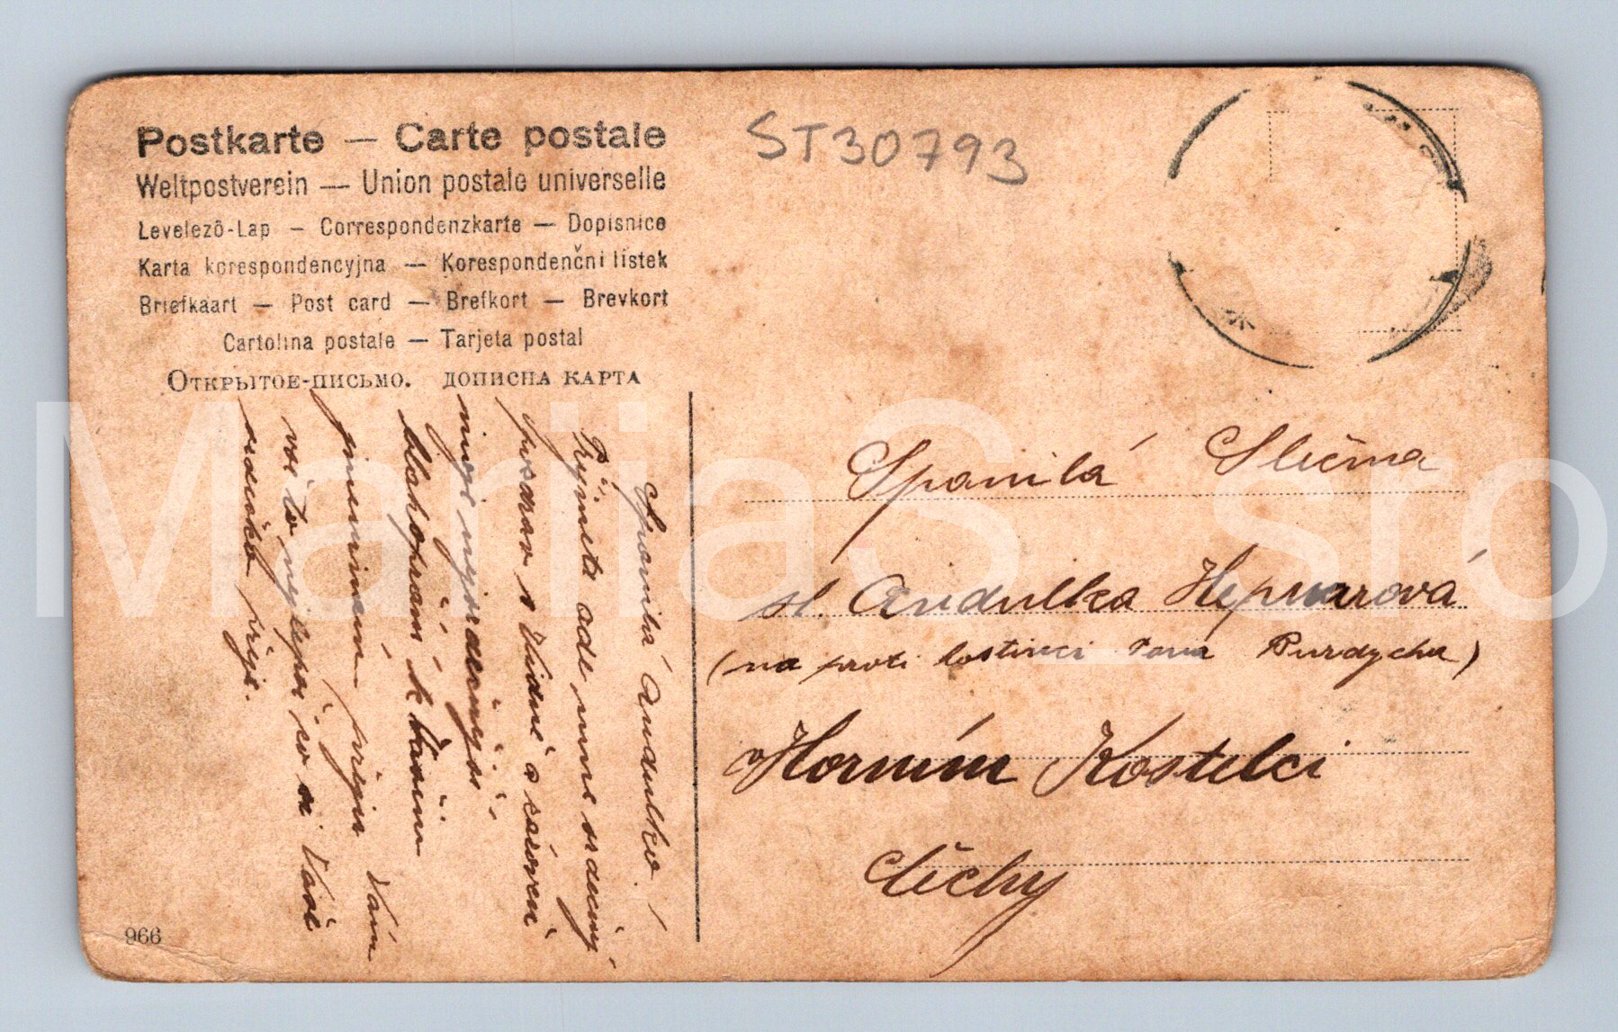 Postkarte — Carte postale
Weltpostverein — Union postale universelle
Levelező-Lap — Correspondenzkarte — Dopisnice
Karta korespondencyjna — Korespondenční lístek
Briefkaart — Post card — Brefkort — Brevkort
Cartolina postale — Tarjeta postal
Открытое-письмо. дописна карта
ST30793
Spanilá Andulko!
Přijměte ode mne srdečný
pozdrav z Vídně a zároveň
moje nejsrdečnější
blahopřání k Vašim
jmeninám přeju Vám
vše to nejlepší co si Vaše
srdéčko přeje.
Spanilá Slečna
sl. Andulka Hepnarová
(na proti hostinci Jana Burdycha)
Horním Kostelci
Čechy
966
MarijaS sro